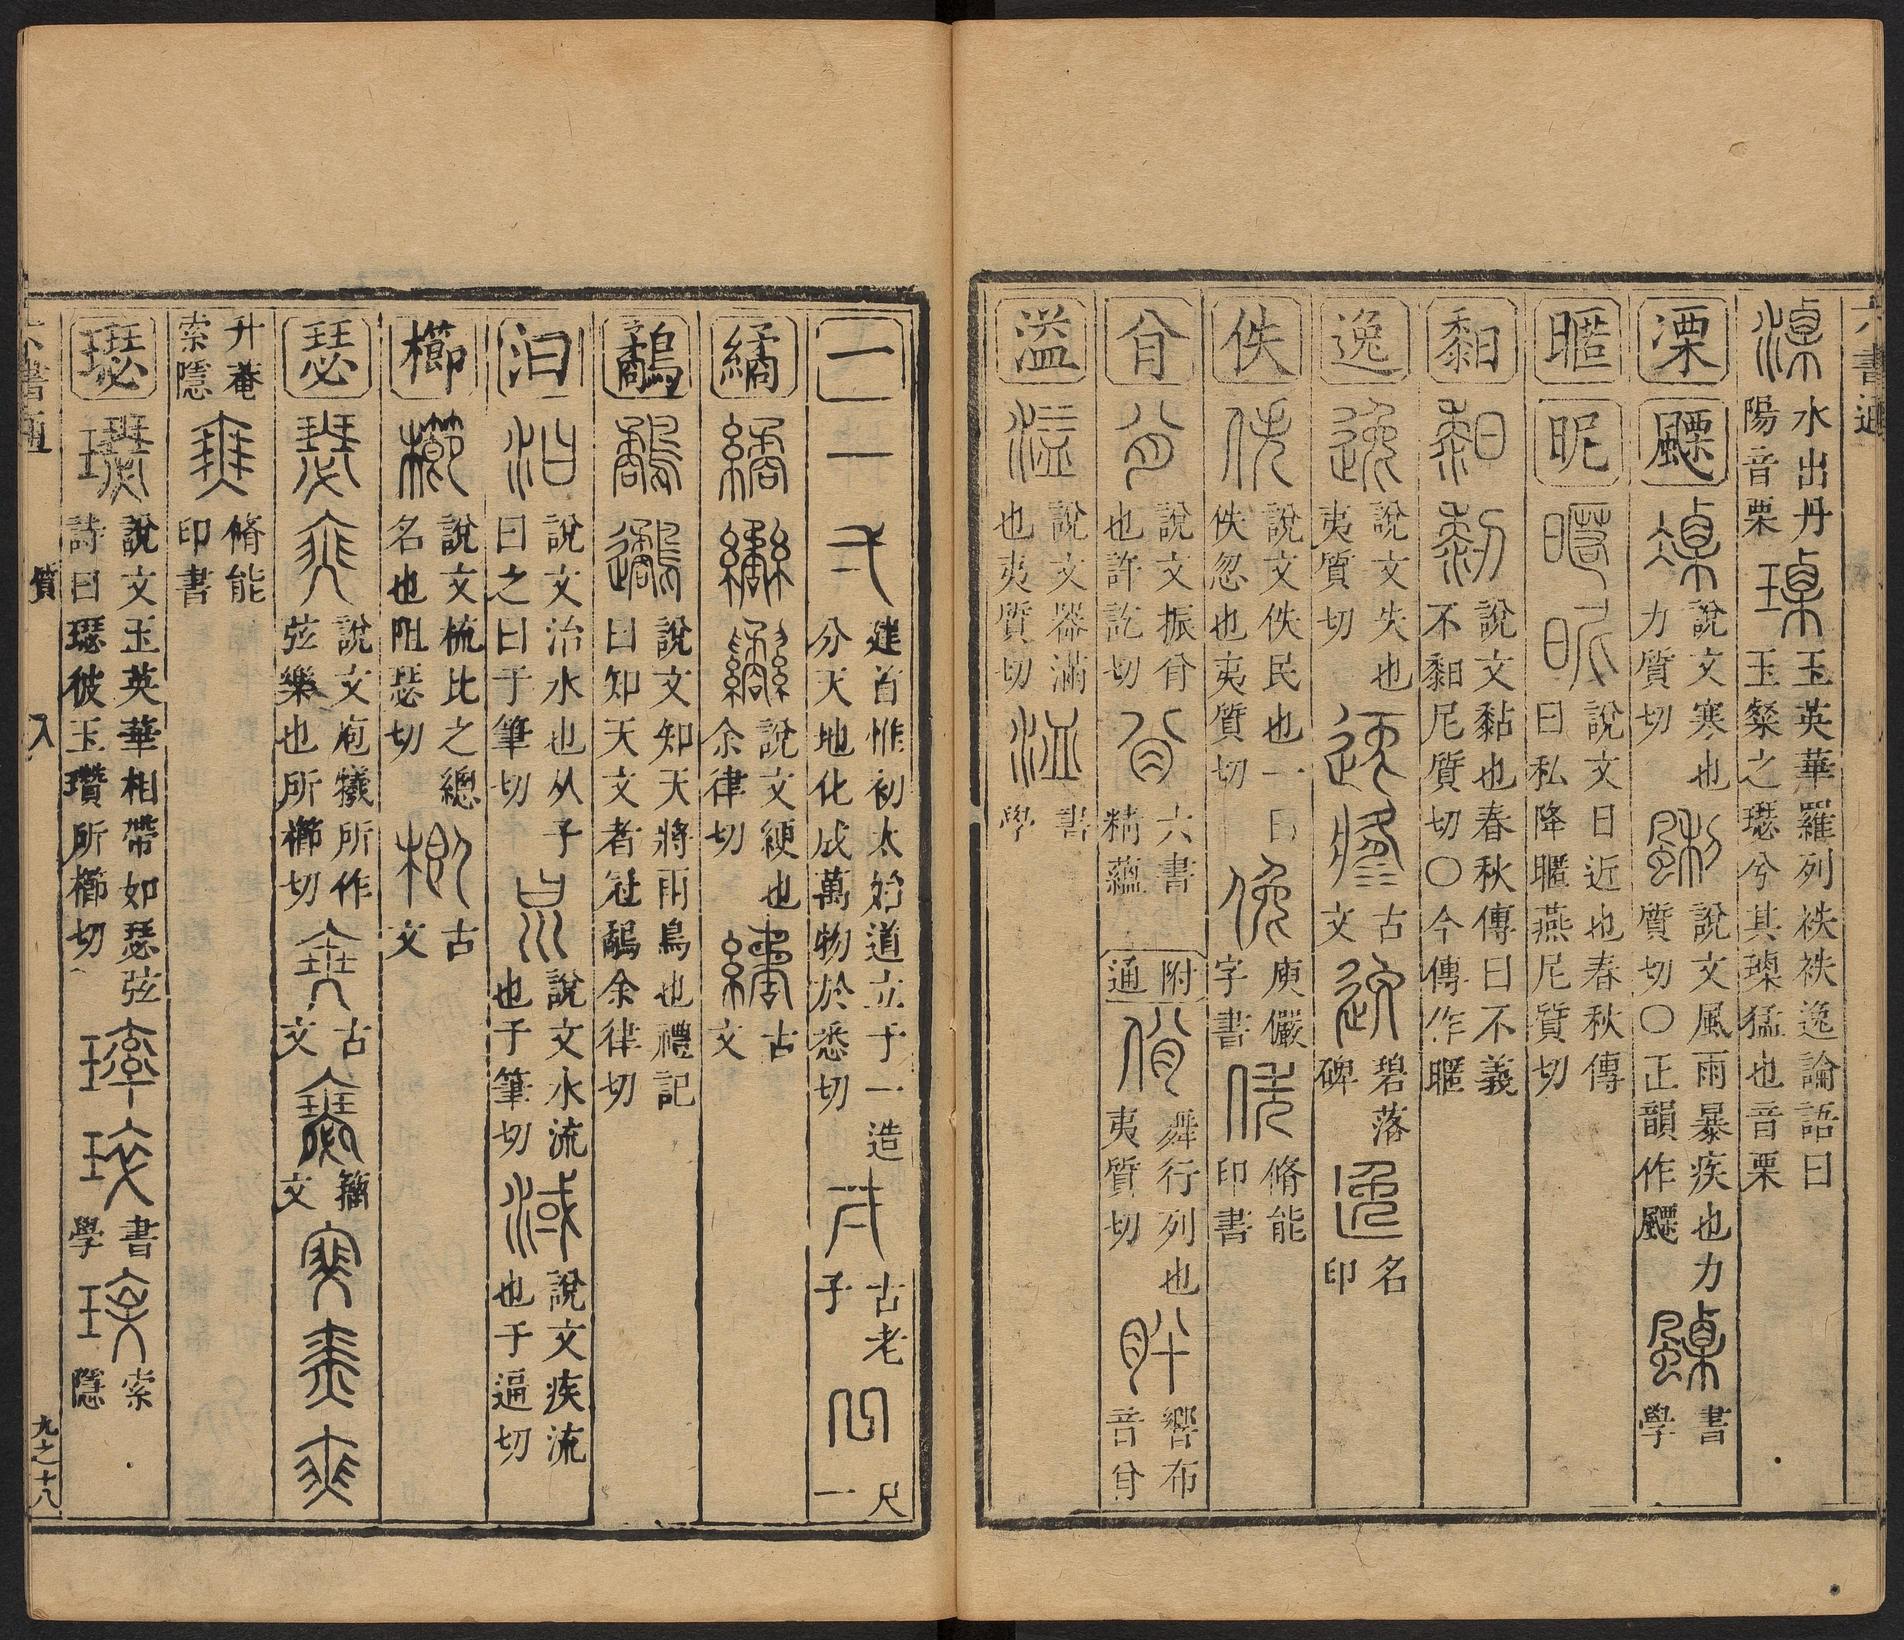 六書通
水出丹陽音栗
玉英華羅列秩秩逸論語曰玉粲之璱兮其瑮猛也音栗
溧 飃 說文寒也力質切 說文風雨暴疾也力質切〇正韻作飃 書學
暱 昵 說文日近也春秋傳曰私降暱燕尼質切
黏 說文黏也春秋傳曰不義不䵒尼質切〇今傳作暱
逸 說文失也夷質切 古文 碧落碑 名印
佚 說文佚民也一曰佚忽也夷質切 庾儼字書 脩能印書
㕣 說文振㕣也許訖切 六書精蘊
附通 舞行列也夷質切 響布音㕣
溢 說文器滿也夷質切 書學
一 弌 建首惟初太始道立于一造分天地化成萬物於悉切 古老子 尺一
繘 說文綆也余律切 古文
鷸 說文知天將雨鳥也禮記曰知天文者冠鷸余律切
汩 說文治水也从子曰之曰于筆切 說文水流也于筆切 說文疾流也于逼切
櫛 說文梳比之總名也阻瑟切 古文
瑟 說文庖犧所作弦樂也所櫛切 古文 籀文
升菴索隱 脩能印書
璱 說文玉英華相帶如瑟弦詩曰璱彼玉瓚所櫛切 書學 索隱
六書通 質 入 九之十八